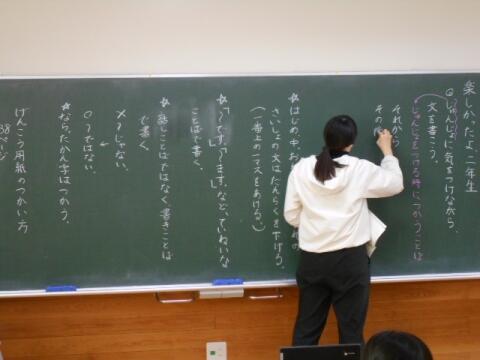 楽しかったよ、二年生
◎じゅんじょに気をつけながら、
文を書こう。
じゅんじょをつける時につかうことば
それから
その
☆はじめ、中、お
さいしょの文はだんらくを下げる。
(一番上の一マスをあける。)
☆「~です。」「~ます。」など、ていねいな
ことばで書く。
☆話しことばではなく、書きことば
で書く。
×~じゃない。
○~ではない。
☆ならったかん字はつかう。
げんこう用紙のつかい方
38ページ